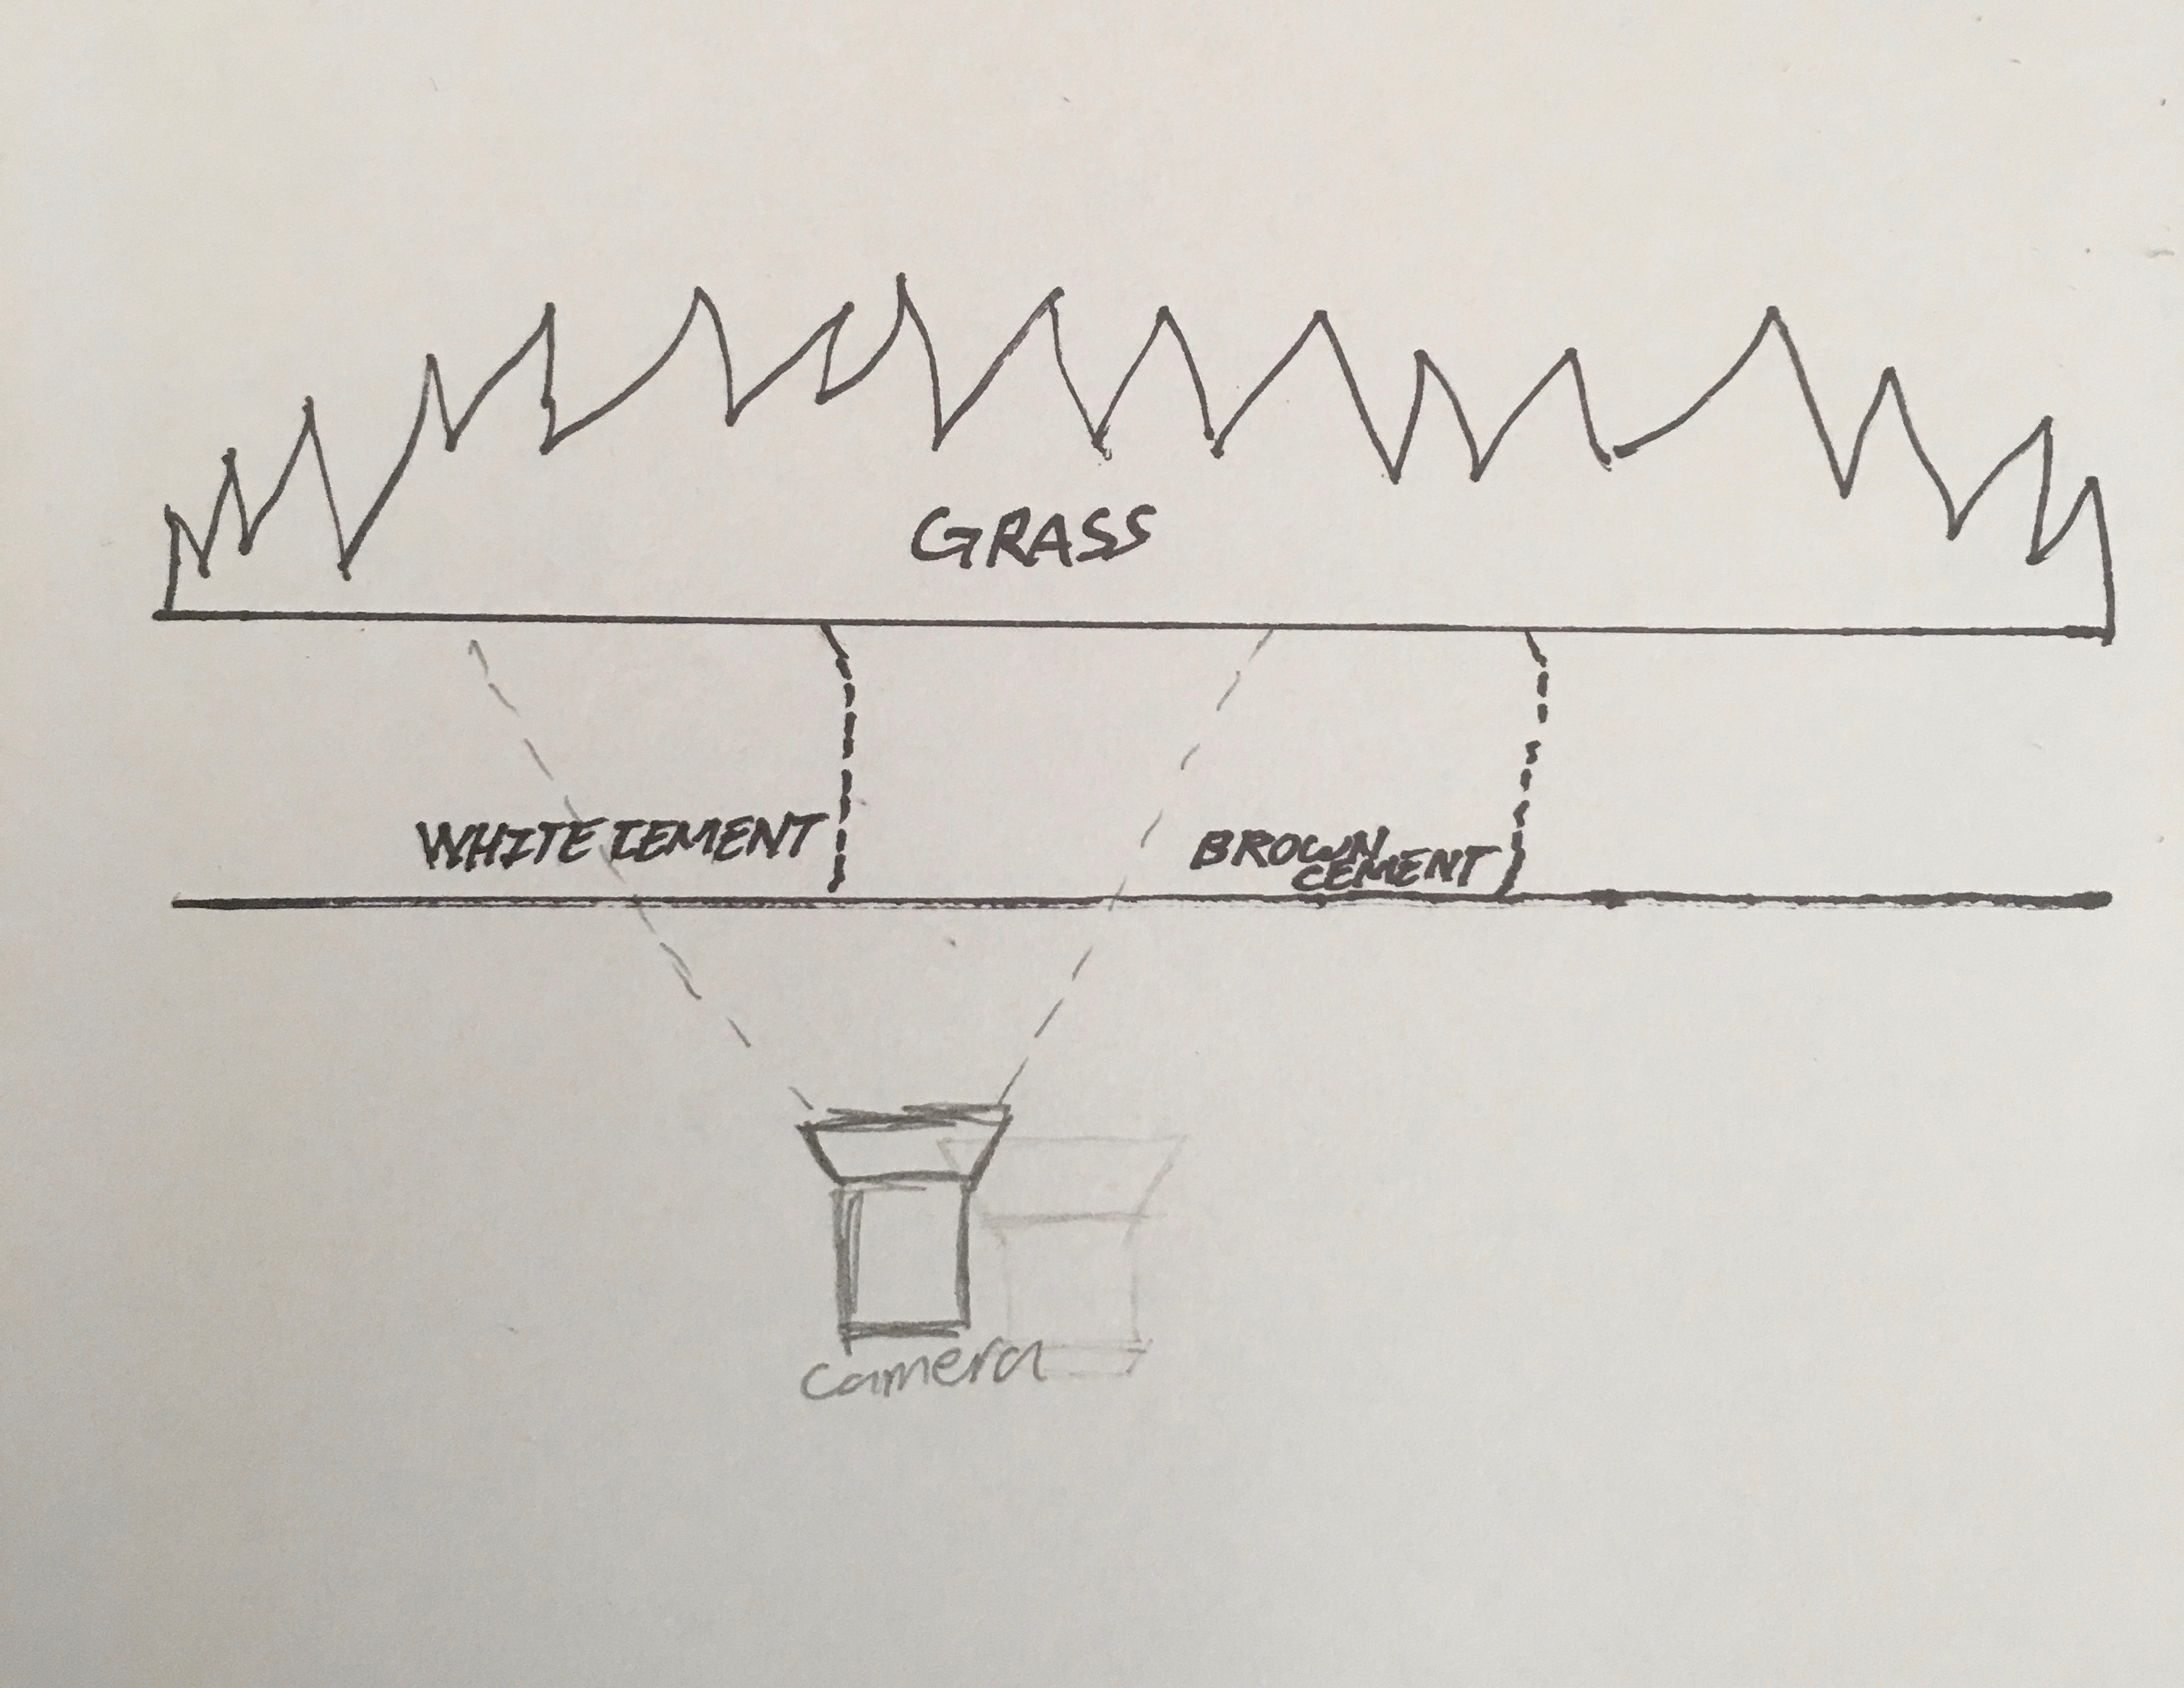 GRASS
WHITE CEMENT
BROWN
CEMENT
camera